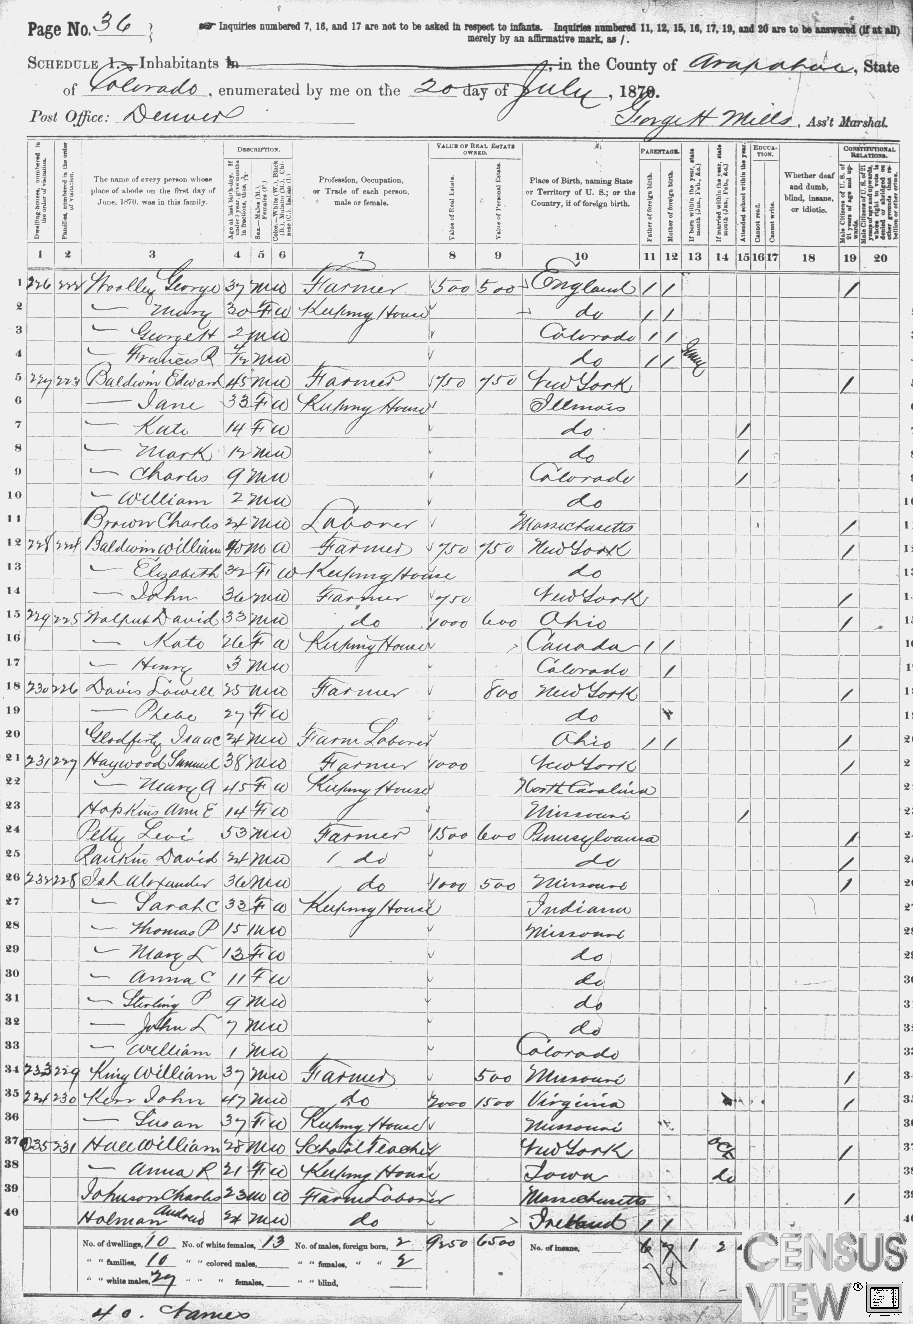 Page No. 36
☞ Inquiries numbered 7, 16, and 17 are not to be asked in respect to infants. Inquiries numbered 11, 12, 15, 16, 17, 19, and 20 are to be answered (if at all)
merely by an affirmative mark, as /.
SCHEDULE 1.—Inhabitants in , in the County of Arapahoe, State
of Colorado, enumerated by me on the 20 day of July, 1870.
Post Office: Denver George H Mills, Ass't Marshal.
Dwelling-houses, numbered in the order of visitation.
Families, numbered in the order of visitation.
The name of every person whose place of abode on the first day of June, 1870, was in this family.
DESCRIPTION.
Profession, Occupation, or Trade of each person, male or female.
VALUE OF REAL ESTATE OWNED.
Value of Real Estate.
Value of Personal Estate.
Place of Birth, naming State or Territory of U. S.; or the Country, if of foreign birth.
PARENTAGE.
Father of foreign birth.
Mother of foreign birth.
Attended school within the year.
EDUCATION.
Cannot read.
Cannot write.
Whether deaf and dumb, blind, insane, or idiotic.
CONSTITUTIONAL RELATIONS.
1 2 3 4 5 6 7 8 9 10 11 12 13 14 15 16 17 18 19 20
1 226 222 Woolley George 37 M W Farmer 500 500 England / / /
2 — Mary 30 F W Keeping House do / /
3 — George H 2 M W Colorado / /
4 — Francis R /12 M W do / / June
5 227 223 Baldwin Edward 45 M W Farmer 750 750 New York /
6 — Jane 33 F W Keeping House Illinois
7 — Kate 14 F W do /
8 — Mark 12 M W do /
9 — Charles 9 M W Colorado /
10 — William 2 M W do
11 Brown Charles 24 M W Laborer Massachusetts /
12 228 224 Baldwin William 40 M W Farmer 750 750 New York /
13 — Elizabeth 32 F W Keeping House do
14 — John 36 M W Farmer 750 New York /
15 229 225 Walput David 33 M W do 1000 600 Ohio /
16 — Kate 26 F W Keeping House Canada / /
17 — Henry 3 M W Colorado /
18 230 226 Davis Lowell 25 M W Farmer 800 New York /
19 — Phebe 27 F W do
20 Isaac 24 M W Farm Laborer Ohio / / /
21 231 227 Haywood Samuel 38 M W Farmer 1000 New York /
22 — Mary A 45 F W Keeping House North Carolina
23 Hopkins Ann E 14 F W Missouri /
24 Petty Levi 53 M W Farmer 1500 600 Pennsylvania /
25 Rankin David 24 M W do do /
26 232 228 Ish Alexander 36 M W do 1000 500 Missouri /
27 — Sarah C 33 F W Keeping House Indiana
28 — Thomas P 15 M W Missouri
29 — Mary L 13 F W do
30 — Anna C 11 F W do
31 — Sterling P 9 M W do
32 — John L 7 M W do
33 — William 1 M W Colorado
34 233 229 King William 37 M W Farmer 500 Missouri /
35 234 230 Kerr John 47 M W do 2000 1500 Virginia /
36 — Susan 37 F W Keeping House Missouri
37 235 231 Hall William 28 M W School Teacher New York Oct /
38 — Anna R 21 F W Keeping House Iowa do
39 Johnson Charles 23 M W Farm Laborer Massachusetts /
40 Holman Andrew 24 M W do Ireland / /
No. of dwellings, 10 No. of white females, 13 No. of males, foreign born, 2 9250 6500 No. of insane, 6 7 1 2
" " families, 10 " " colored males, " " females, " " 2 7 8
" " white males, 27 " " " females, " " blind,
40 Names
CENSUS
VIEW®